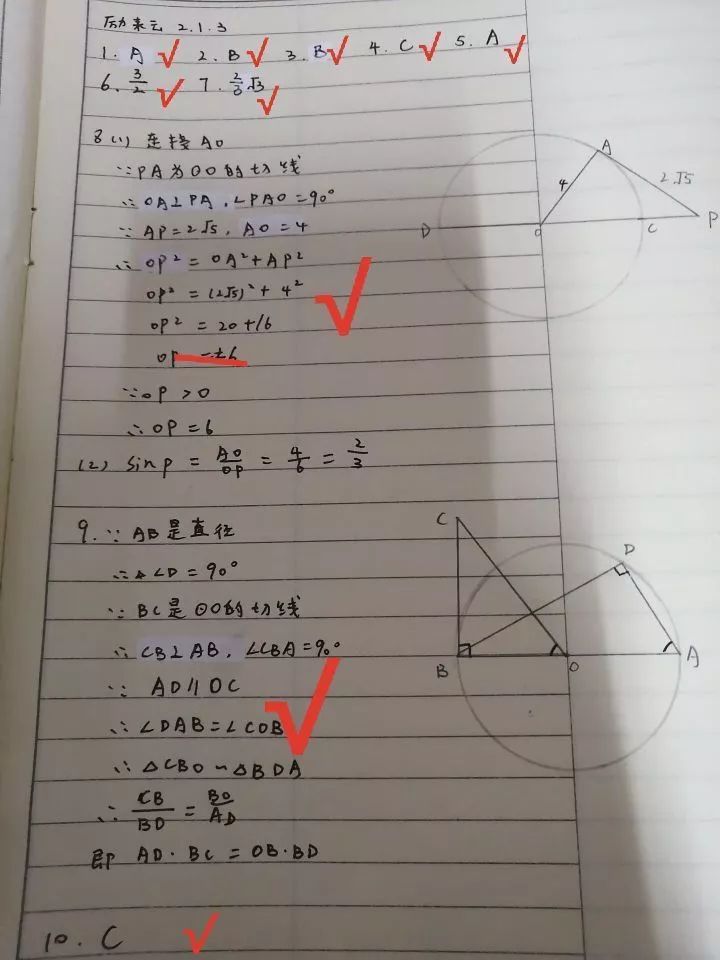 励耘六 2.1.3
1. A 2. B 3. B 4. C 5. A
6. 3/2 7. 2/3 √3
8 (1) 连接AO
∵PA为⊙O的切线
∴OA⊥PA,∠PAO=90°
∵AP=2√5,AO=4
∴OP²=OA²+AP²
OP²=(2√5)²+4²
OP²=20+16
OP=±6
∵OP>0
∴OP=6
(2) sin P = AO/OP = 4/6 = 2/3
A
4
2√5
D
O
C
P
9.∵AB是直径
∴∠D=90°
∵BC是⊙O的切线
∴CB⊥AB,∠CBA=90°
∵AD∥OC
∴∠DAB=∠COB
∴△CBO∽△BDA
∴CB/BD=BO/AD
即 AD·BC=OB·BD
C
D
B
O
A
10. C